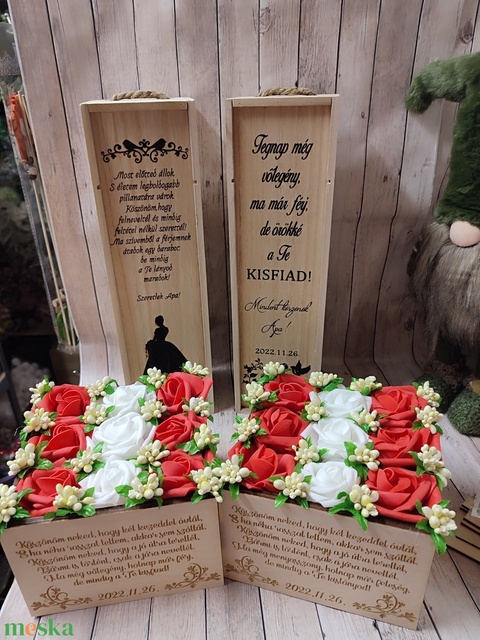 Most előtted állok
S életem legboldogabb
pillanatára várok.
Köszönöm, hogy
felneveltél és mindig
feltétel nélkül szerettél!
Ma szívemből a férjemnek
átadok egy darabot,
de mindig
a Te lányod
maradok!
Szeretlek Apa!
Tegnap még
vőlegény,
ma már férj,
de örökké
a Te
KISFIAD!
Mindent köszönök
Apa!
2022.11.26.
Köszönöm neked, hogy két kezeddel óvtál,
S ha néha rosszat tettem, akkor sem szóltál.
Köszönöm neked, hogy a jó útra neveltél,
Bármi is történt, csak a jóra neveltél.
Ha még vőlegény, holnap már férj,
de mindig a Te kisfiad!
2022.11.26.
Köszönöm neked, hogy két kezeddel óvtál,
S ha néha rosszat tettem, akkor sem szóltál.
Köszönöm neked, hogy a jó útra neveltél,
Bármi is történt, csak a jóra neveltél.
Ma még menyasszony, holnap már feleség,
de mindig a Te kislányod!
2022.11.26.
meska